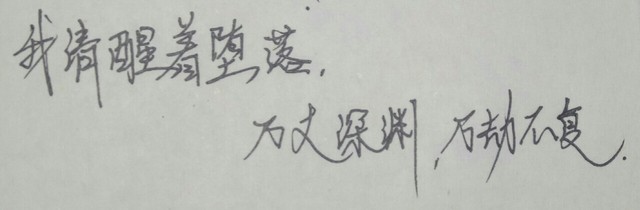 我清醒着堕落.
万丈深渊,万劫不复.